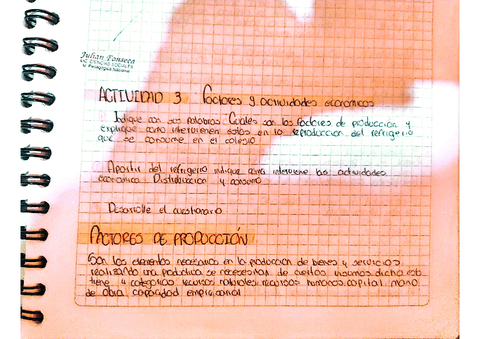 Julian Fonseca
LIC. CIENCIAS SOCIALES
U. Pedagógica Nacional
ACTIVIDAD 3 Factores y actividades economicos
Indique con sus palabras Cuales son los factores de produccion y
explique como intervienen estos en la reproduccion del refrigerio
que se consume en el colegio
Apartir del refrigerio indique como interviene las actividades
economica Distribucion y consumo
Desarrolle el cuestionario
FACTORES DE PRODUCCIÓN
Son los elementos necesarios en la produccion de bienes y servicios
realizando una productiva se necesesitan de ciertos insumos dicho esto
tiene 4 categorias recursos naturales recursos humanos capital mano
de obra capacidad empresarial